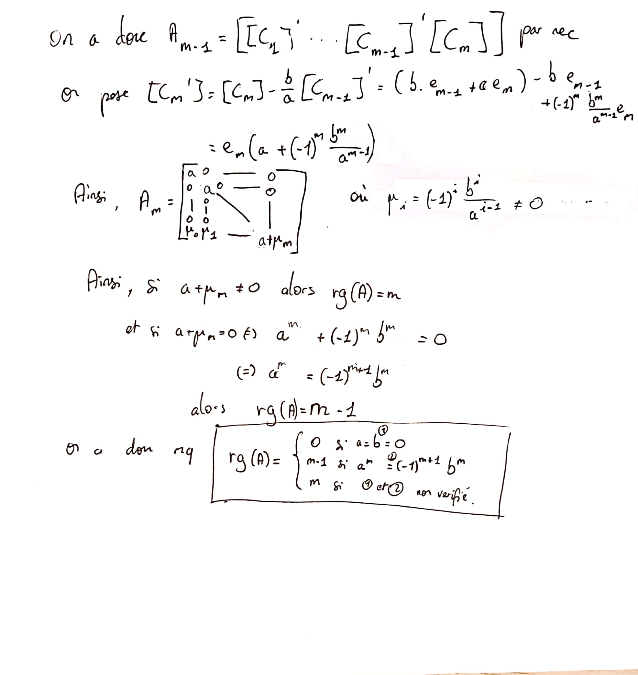 On a donc A_{m-1} = [[C_1]' ... [C_{m-1}]' [C_m]] par rec
on pose [C_m'] = [C_m] - b/a [C_{m-1}]' = (b. e_{m-1} + a e_m) - b e_{m-1} + (-1)^m b^m/a^{m-1} e_m
= e_m (a + (-1)^m b^m/a^{m-1})
Ainsi, A_m = [a 0 — 0
0 a 0 — 0
0 0
μ_0 μ_1 — a+μ_m] où μ_i = (-1)^i b^i/a^{i-1} ≠ 0 .....
Ainsi, si a+μ_m ≠ 0 alors rg(A) = m
et si a+μ_m = 0 (=) a^m + (-1)^m b^m = 0
(=) a^m = (-1)^{m+1} b^m
alors rg(A) = m - 1
on a donc mq rg(A) = { 0 si a = b = 0 ①
m-1 si a^m = (-1)^{m+1} b^m ②
m si ① et ② non verifié.